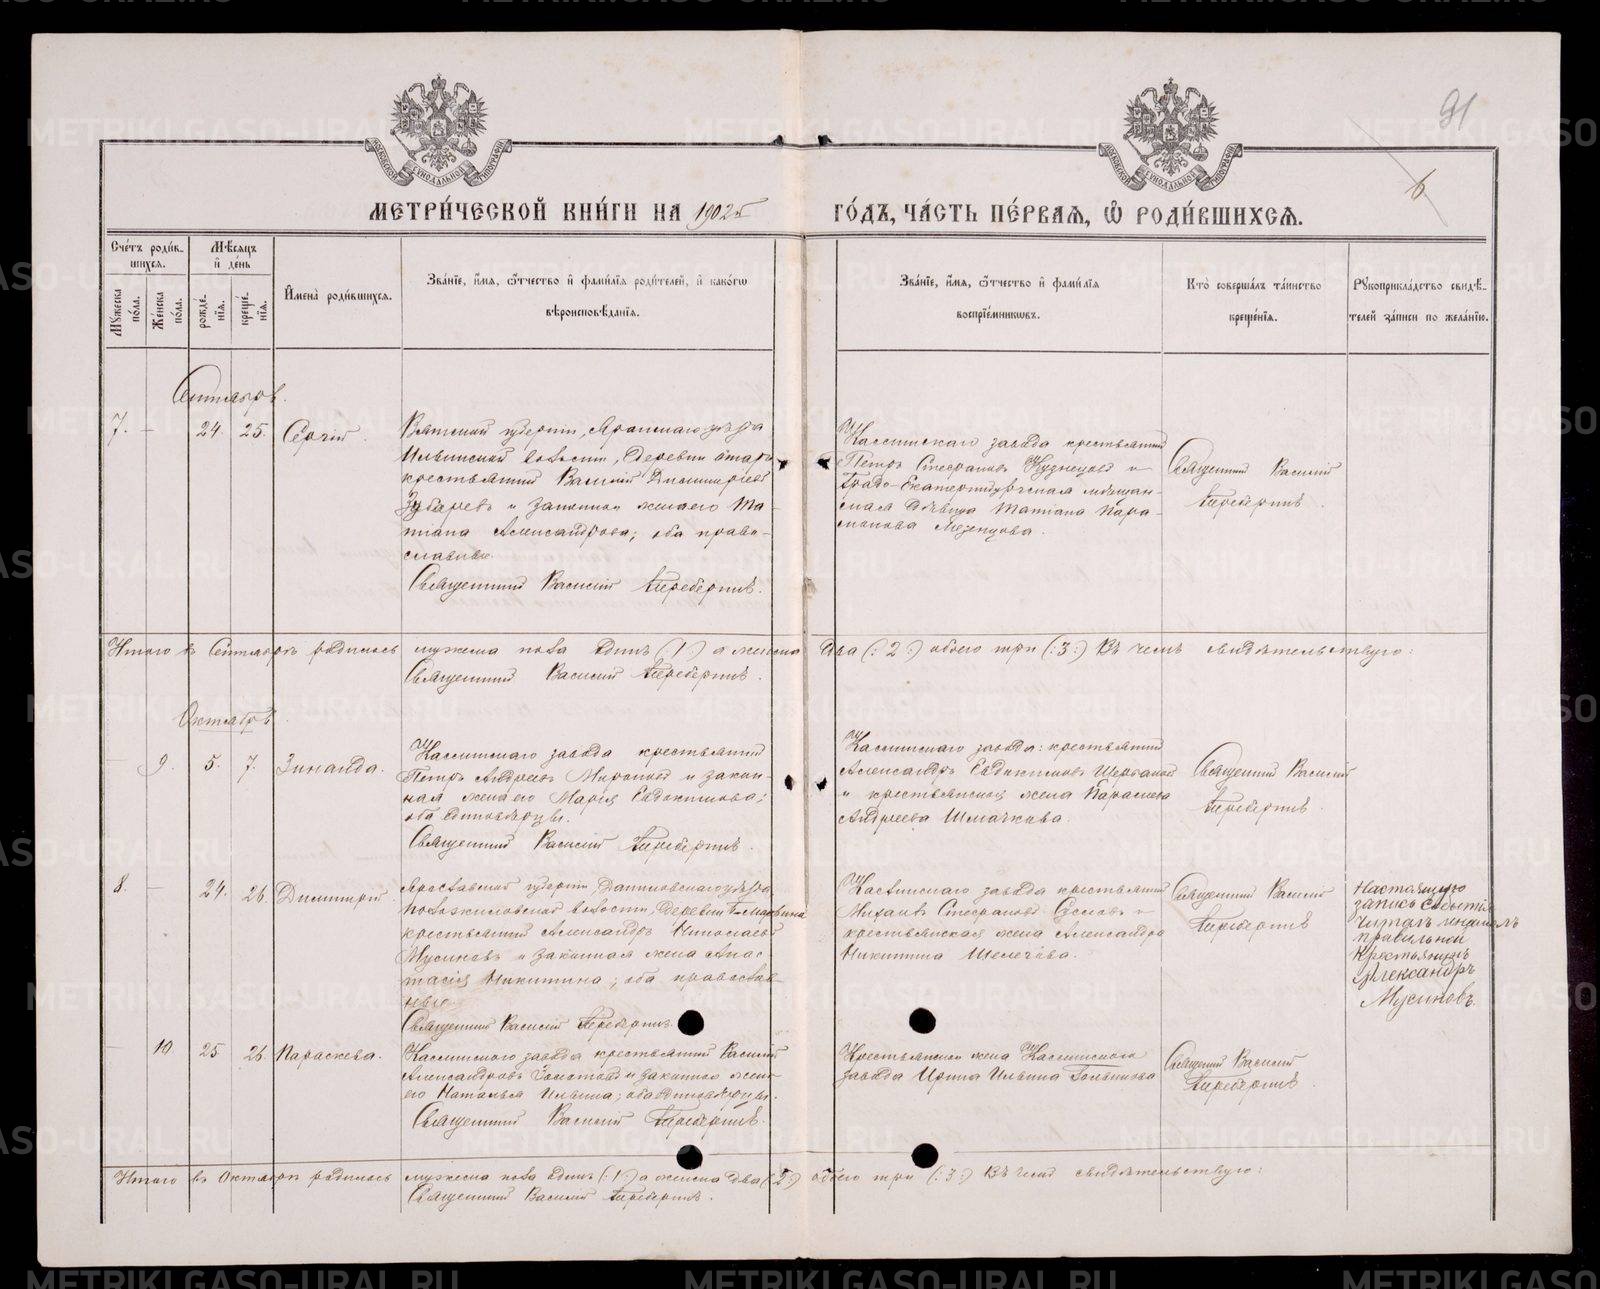 91
6
МЕТРИ́ЧЕСКОЙ КНИ́ГИ НА 1902й
ГО́ДЪ, ЧА́СТЬ ПЕ́РВАЯ, Ѡ РОДИ́ВШИХСЯ.
Сче́тъ роди́в-
шихся.
Мꙋжеска по́ла.
Же́нска по́ла.
Мѣ́сяцъ
и҆ де́нь
рожде́-
нїя.
креще́-
нїя.
И҆мена̀ роди́вшихся.
Зва́нїе, и҆́мя, ѻ҆́тчество и҆ фами́лїя роди́телей, и҆ како́гѡ
вѣроисповѣ́данїя.
Зва́нїе, и҆́мя, ѻ҆́тчество и҆ фами́лїя
воспрїе́мникѡвъ.
Кто̀ соверша́лъ та́инство
креще́нїя.
Рꙋкоприкла́дство свидѣ́-
телей за́писи по жела́нїю.
Сентябрь.
7. – 24. 25. Сергій.
Вятской губерніи, Яранскаго уѣзда
Ильинской волости, деревни
крестьянинъ Василій Димитріевъ
Зубаревъ и законная жена его Та-
тіана Александрова; оба право-
славные.
Священникъ Василій
Каслинскаго завода крестьянинъ
Петръ Стефановъ Кузнецовъ и
Градо-Екатеринбургская мѣщан-
ская дѣвица Татіана Пара-
монова Мезенцова.
Священникъ Василій
Итого въ Сентябрѣ родилось мужеска пола одинъ (:1:) а женска два (:2:) обоего три (:3:) Въ чемъ свидѣтельствую:
Священникъ Василій
Октябрь.
– 9. 5. 7. Зинаида.
Каслинскаго завода крестьянинъ
Петръ Андреевъ Мироновъ и закон-
ная жена его Марія Евдокимова;
оба единовѣрцы.
Священникъ Василій
Каслинскаго завода: крестьянинъ
Александръ Евдокимовъ
и крестьянская жена Параскева
Андреева
Священникъ Василій
8. – 24. 26. Димитрій.
Ярославской губерніи, Даниловскаго уѣзда
волости, деревни
крестьянинъ Александръ Николаевъ
Мусиновъ и законная жена Анас-
тасія Никитина; оба православ-
ные.
Священникъ Василій
Каслинскаго завода крестьянинъ
Михаилъ Стефановъ и
крестьянская жена Александра
Никитина Шелегова.
Священникъ Василій
Настоящую
запись событія
читалъ
правильной
Крестьянинъ
Александръ
Мусиновъ.
– 10 25 26 Параскева.
Каслинскаго завода крестьянинъ Василій
Александровъ Золотовъ и законная жена
его Наталья Ильина; оба единовѣрцы.
Священникъ Василій
Крестьянская жена Каслинскаго
завода Ирина Ильина
Священникъ Василій
Итого въ Октябрѣ родилось мужеска пола одинъ (:1:) а женска два (:2:) обоего три (:3:) Въ чемъ свидѣтельствую:
Священникъ Василій
METRIKI.GASO-URAL.RU